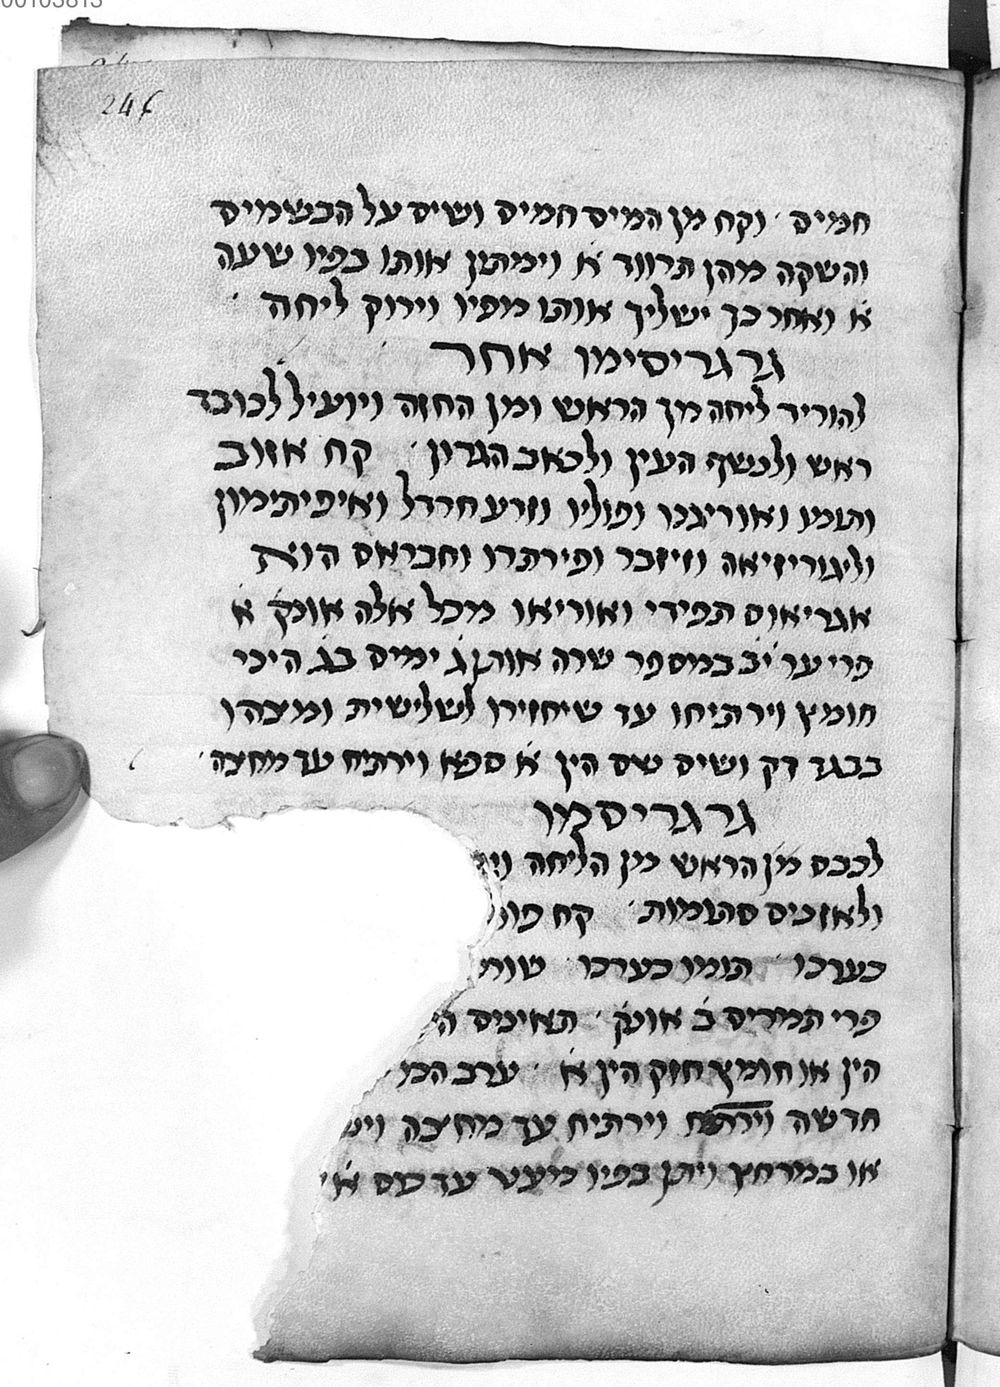 00103813
246
חמים · וקח מן המים חמים ושים על הבשמים
והשקה מהן תרווד א וימתין אותו בפיו שעה
א ואחר כך ישליך אותו מפיו וירוק ליחה ·
גרגריסימון אחר
להוריד ליחה מן הראש ומן החזה ויועיל לכובד
ראש ולנשף העין ולכאב הגרון · קח אזוב
ותומו ואוריגנו ופוליו וזרע חרדל ואיפיתימון
וליגוריזיאה וזיזבר ופירתרו וחבראס הוא
אגריאוס תפידי ואוריאו מכל אלה אונק א
פרי ער י״ב במספר שרה אותן ג ימים בג היני
חומץ וירתיחו עד שיחזירו לשלישית ומצהו
בבגד דק ושים שם הין א ספא וירתיח עד מחצה ·
גרגריסמו
לכבס מן הראש מן הליחה
ולאזנים סתומות · קח
כערכו · תומו כערכו ·
פרי תמרים ב אונק · תאינים
הין או חומץ חזק הין א · ערב
חדשה וירתח וירתיח עד מחצה
או במרחץ ויתן בפיו מעט עד שם א